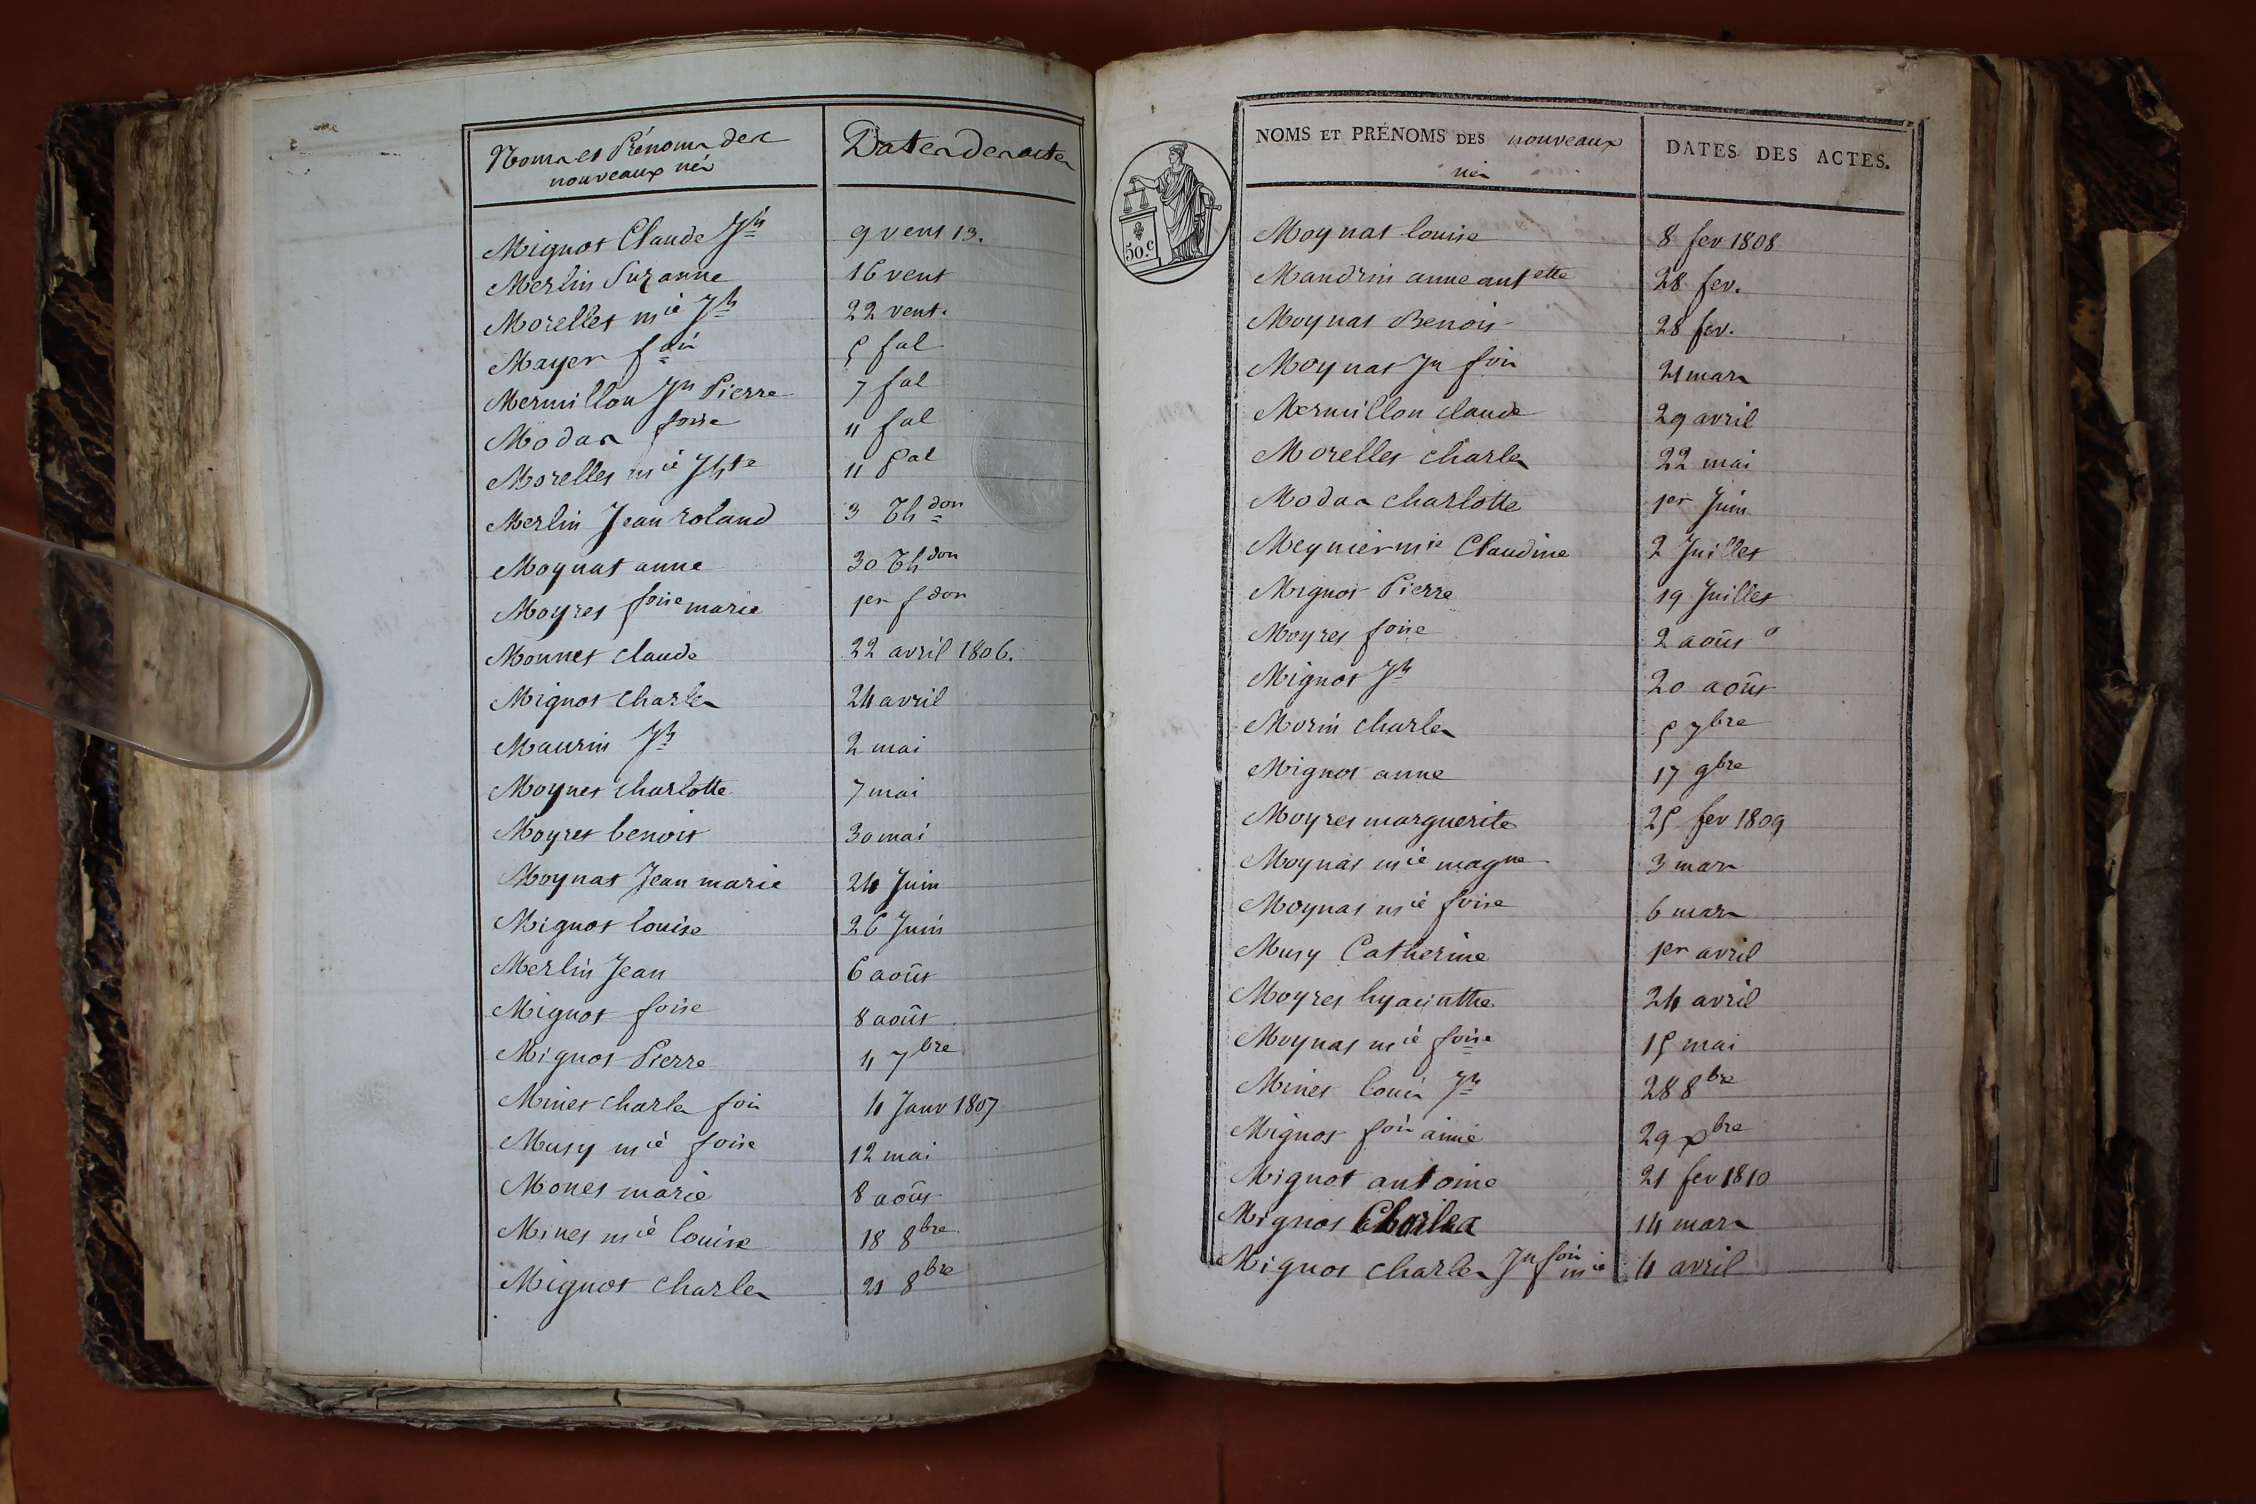 Noms et Prénoms des
nouveaux nés
Dates des actes
Mignot Claude Jh 9 vent 13.
Merlin Suzanne 16 vent
Morellet mie Jh 22 vent.
Mayer fois 5 fal
Mermillon Jn Pierre 7 fal
Modas foise 11 fal
Morellet mie Jhte 11 fal
Merlin Jean roland 3 Th don
Moynat anne 30 Th don
Moyret foise marie 1er f don
Monnet claude 22 avril 1806.
Mignot charles 24 avril
Maurin Jh 2 mai
Moynet charlotte 7 mai
Moyret benoit 30 mai
Moynat Jean marie 24 Juin
Mignot louise 26 Juin
Merlin Jean 6 août
Mignot foise 8 août
Mignot Pierre 4 7bre
Minet charles fois 4 Janv 1807
Musy mie foise 12 mai
Monet marie 8 août
Minet mie louise 18 8bre
Mignot charles 21 8bre
50.c
NOMS ET PRÉNOMS DES nouveaux
nés
DATES DES ACTES.
Moynat louise 8 fev 1808
Mandrin anne antette 28 fev.
Moynat Benoit 28 fev.
Moynat Jn fois 21 mars
Mermillon claude 29 avril
Morellet charles 22 mai
Modas charlotte 1er Juin
Meynier mie Claudine 2 Juillet
Mignot Pierre 19 Juillet
Moyret foise 2 août
Mignot Jh 20 août
Morin charles 5 7bre
Mignot anne 17 9bre
Moyret marguerite 25 fev 1809
Moynat mie magne 3 mars
Moynat mie foise 6 mars
Musy Catherine 1er avril
Moyret hyacinthe 24 avril
Moynat mie foise 15 mai
Minet louis Jh 28 8bre
Mignot fois aimé 29 xbre
Mignot antoine 21 fev 1810
Mignot Charles 14 mars
Mignot charles Jn fois mie 4 avril